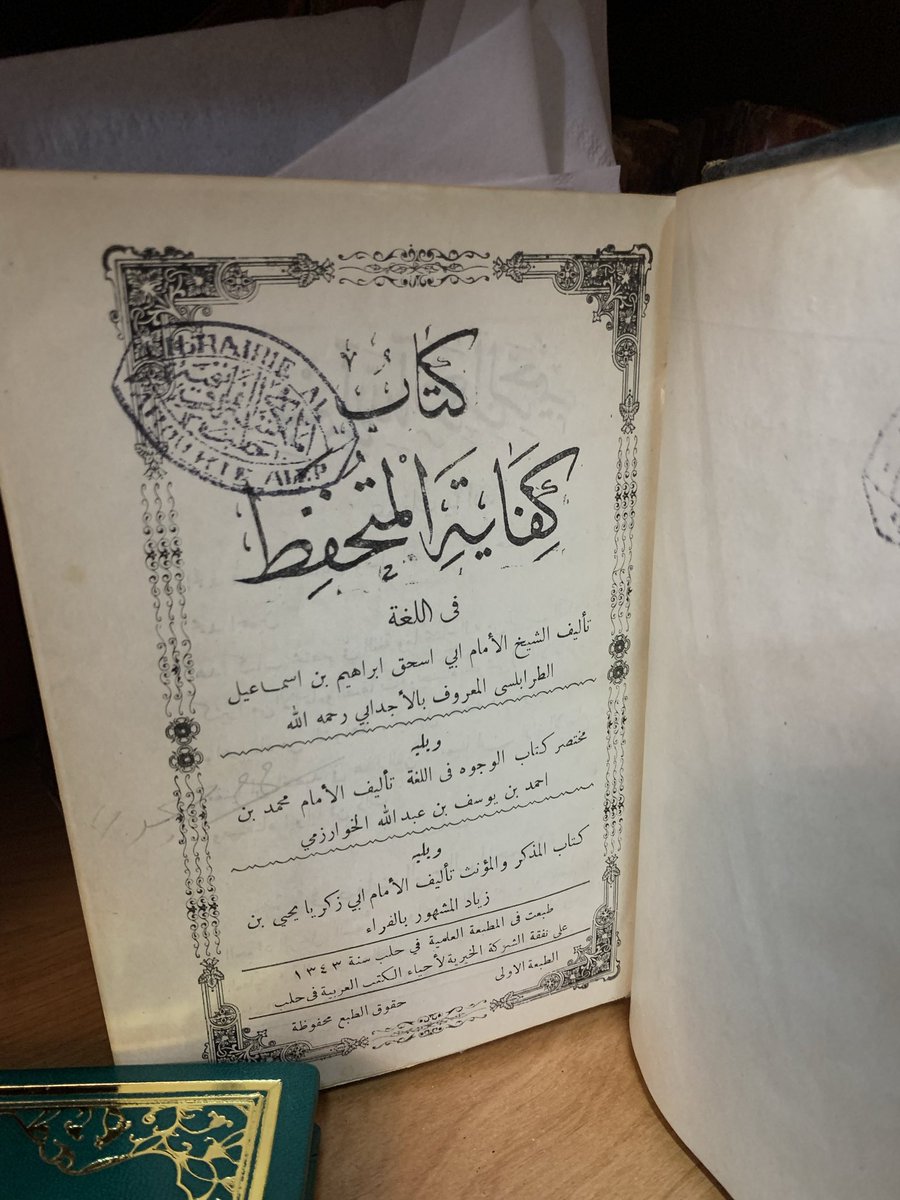 كتاب
كفاية المتحفظ
فى اللغة
تأليف الشيخ الأمام ابي اسحق ابراهيم بن اسماعيل
الطرابلسى المعروف بالأجدابي رحمه الله
ويليه
مختصر كتاب الوجوه فى اللغة تأليف الأمام محمد بن
احمد بن يوسف بن عبدالله الخوارزمي
ويليه
كتاب المذكر والمؤنث تأليف الأمام ابي زكريا يحيى بن
زياد المشهور بالفراء
طبعت فى المطبعة العلمية في حلب سنة ١٣٤٣
على نفقة الشركة الخيرية لأحياء الكتب العربية فى حلب
الطبعة الاولى
حقوق الطبع محفوظة
LIBRAIRIE AL
ALEP